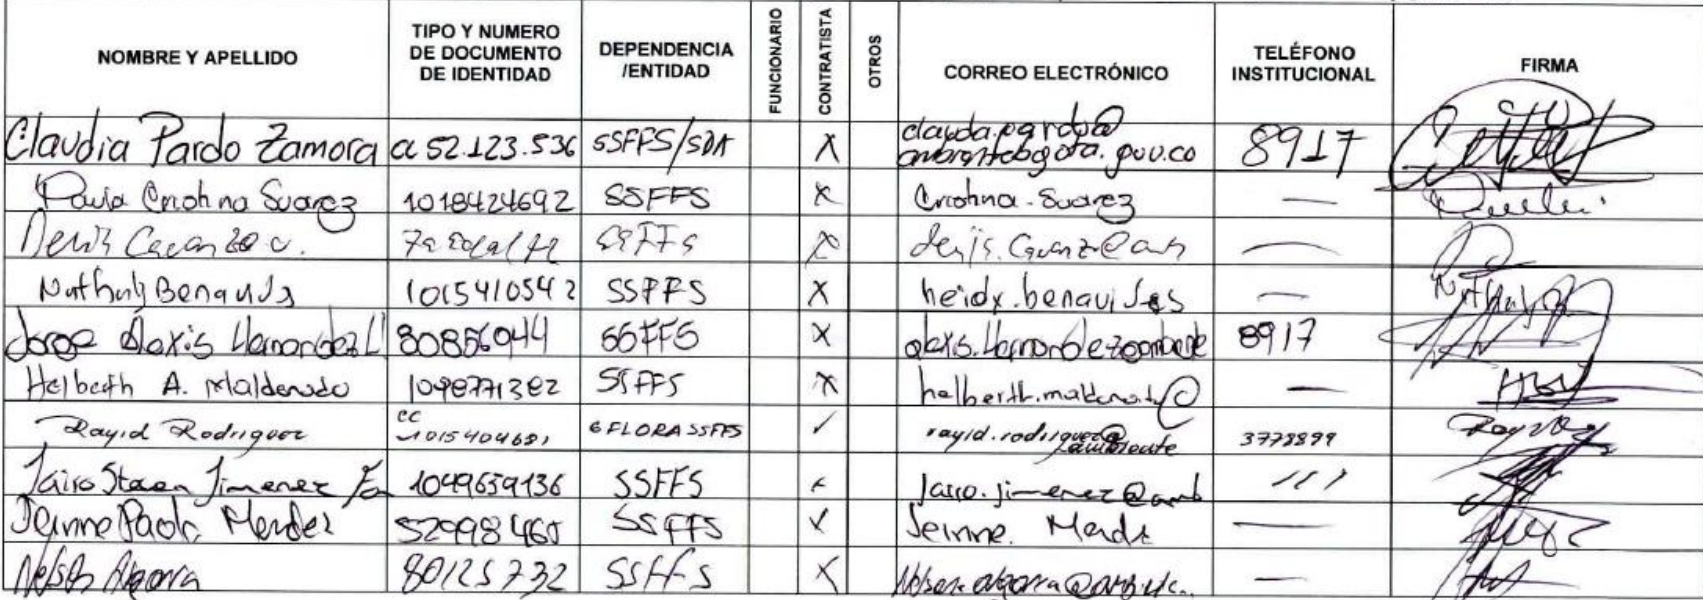 NOMBRE Y APELLIDO TIPO Y NUMERO DE DOCUMENTO DE IDENTIDAD DEPENDENCIA /ENTIDAD FUNCIONARIO CONTRATISTA OTROS CORREO ELECTRÓNICO TELÉFONO INSTITUCIONAL FIRMA
Claudia Pardo Zamora 52.123.536 SSFFS/SDA X claudia.pardo@ ambientebogota.gov.co 8917
Paula Cristina Suarez 1018424692 SSFFS X Cristina.Suarez —
SSFFS X —
Nathaly Benavids 1015410542 SSFFS X heidy.benavides —
Jorge Alexis Hernandez L 80856044 SSFFS X alexis.hernandez@ambiente 8917
Helberth A. Maldonado 1098771382 SSFFS X helberth.maldonado@ —
Rayid Rodriguez cc 1015404681 6 FLORA SSFFS ✓ rayid.rodriguez@ ambiente 3778899
Jairo Steven Jimenez 1049639136 SSFFS Jairo.jimenez@amb
Jeinne Paola Mendez 52998460 SSFFS Jeinne. —
80125732 SSFFS X —